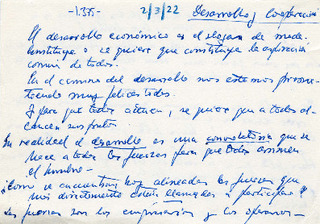 -1.335- 2/3/22 Desarrollo y Cooperación
El desarrollo económico es el slogan de moda
constituye o se quiere que constituya la aspiración
común de todos.
En el camino del desarrollo nos estamos prome-
tiendo muy felicidades.
Y para que todos actúen, se quiere que a todos al-
cancen sus frutos
En realidad el desarrollo es una convocatoria que se
hace a todas las fuerzas para que todos asuman
el hombre -
¿Cómo se encuentran hoy alineadas las fuerzas que
más directamente están llamadas a participar?
Las fuerzas son los empresarios y los operarios -